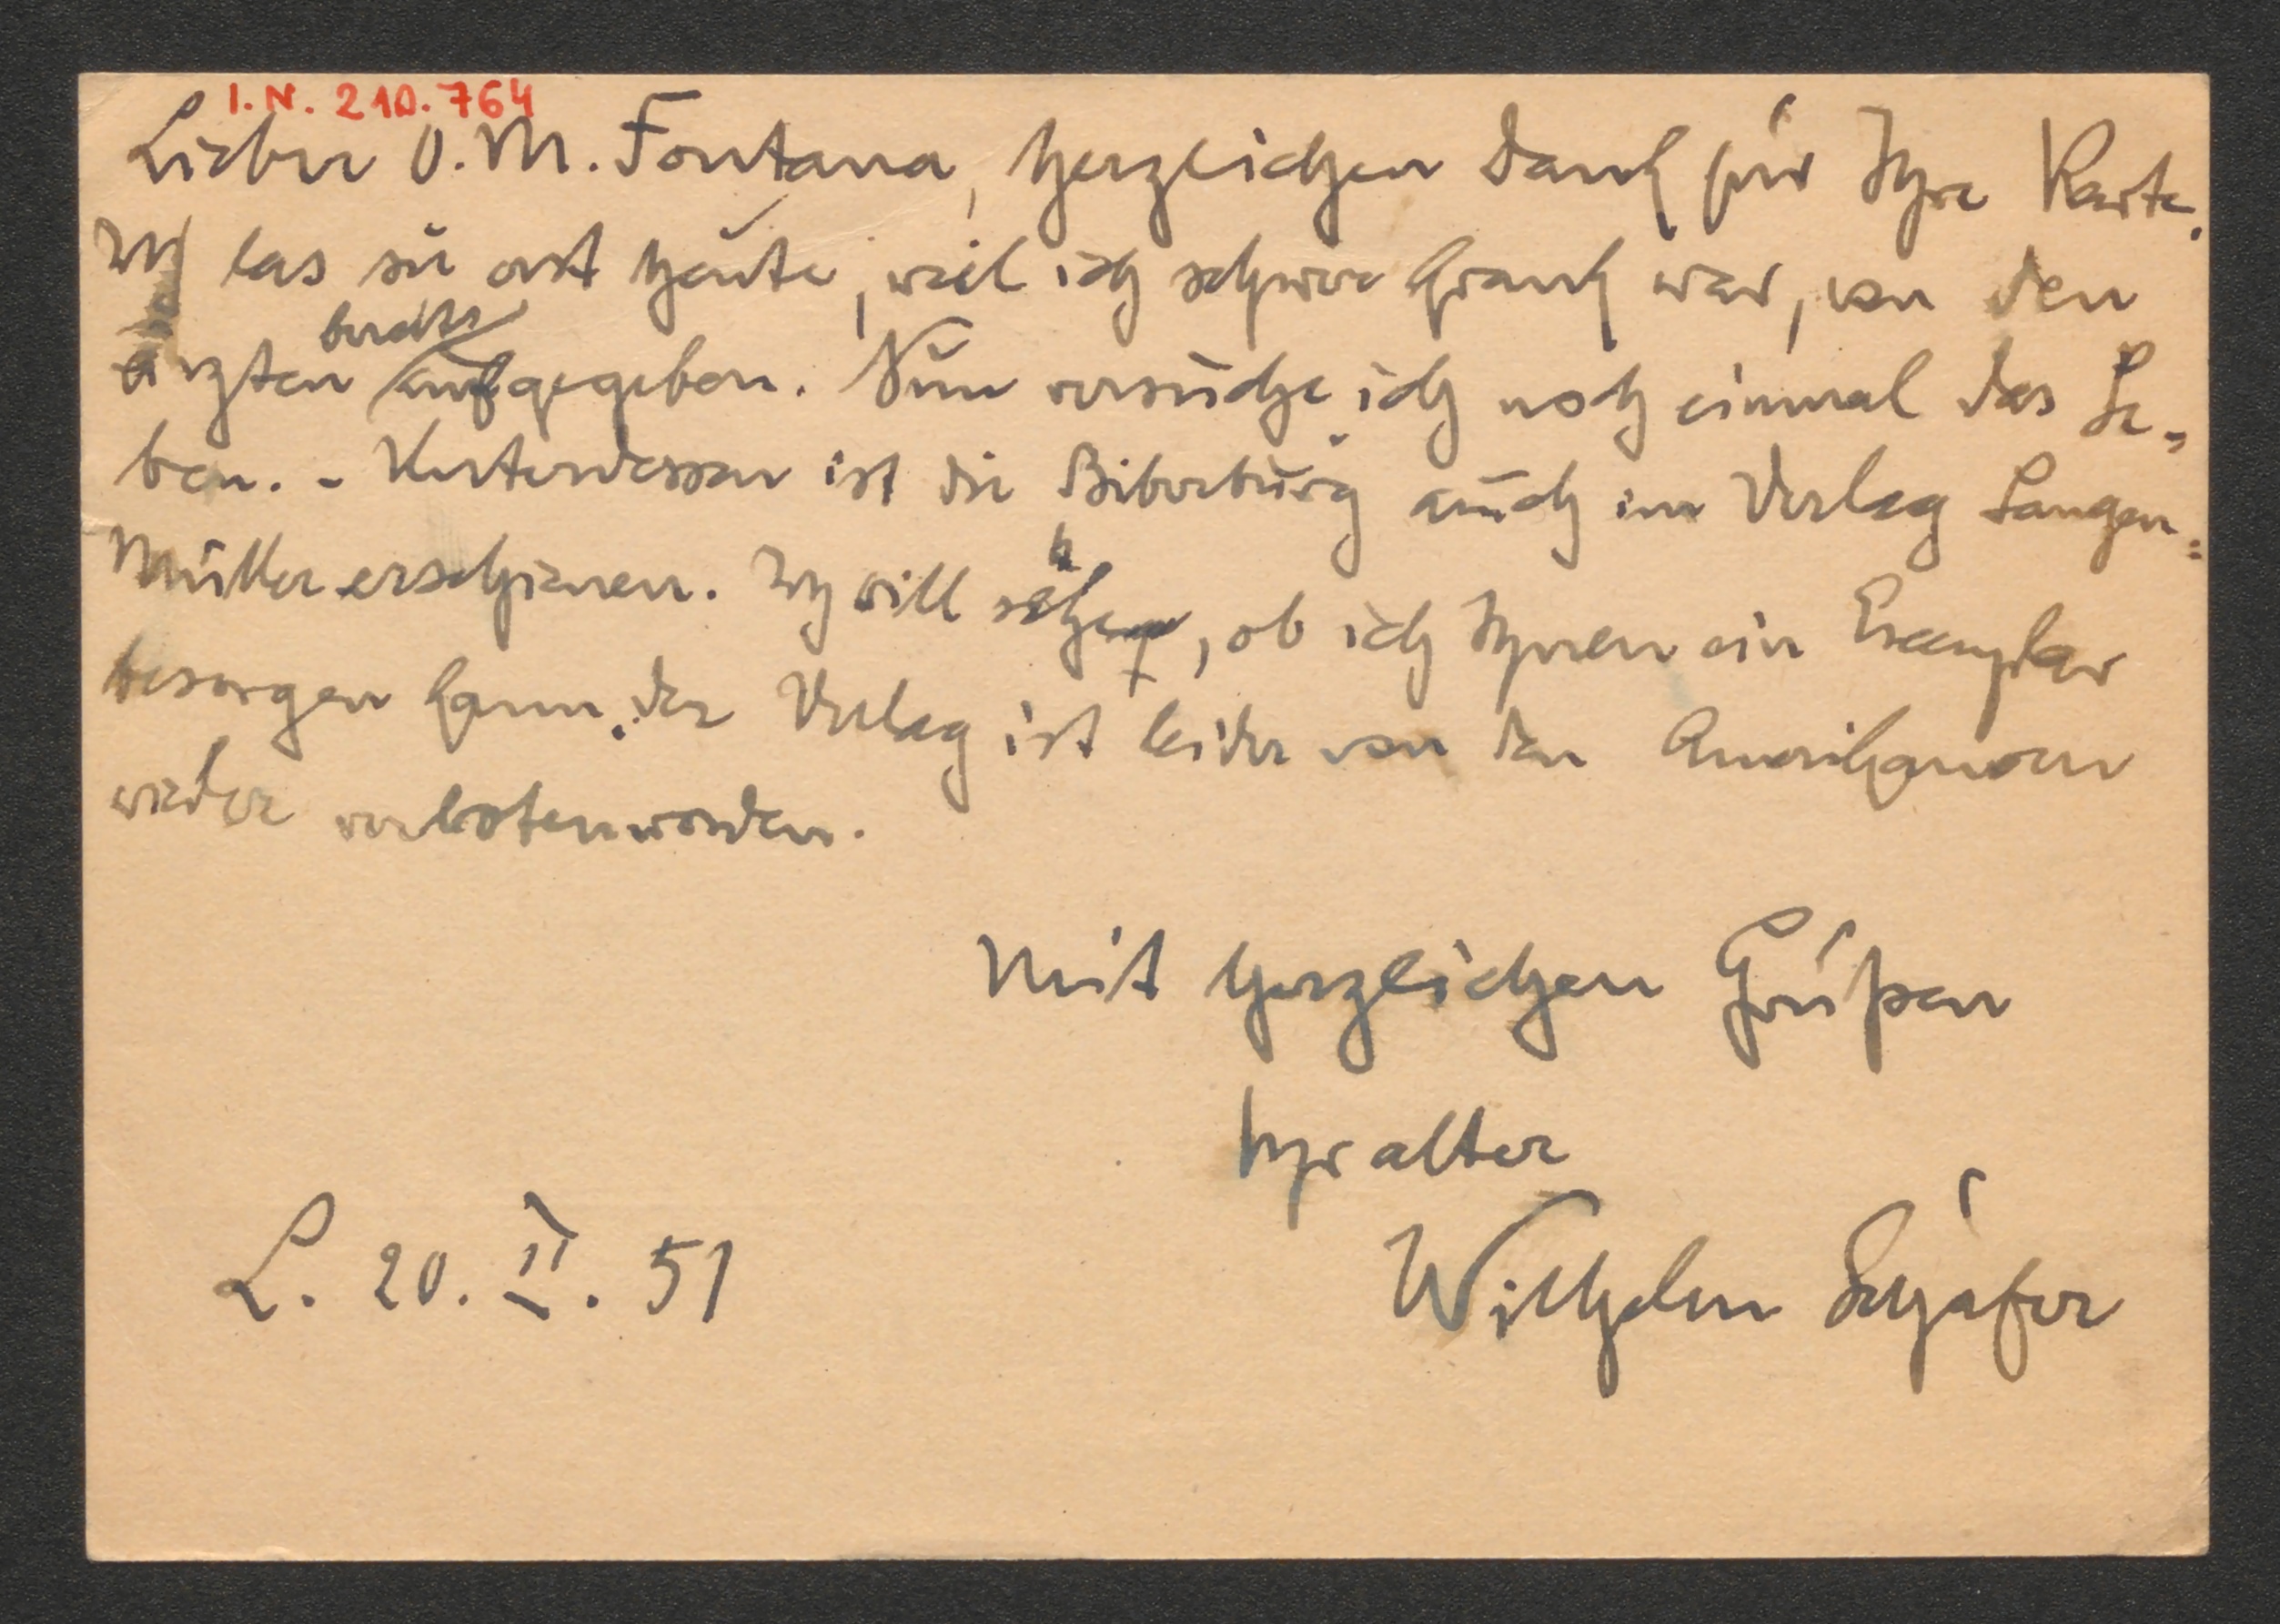 I.N. 210.764
Lieber O. M. Fontana, herzlichen Dank für Ihre Karte.
Ich las sie erst heute, weil ich schwer krank war, von den
Ärzten bereits aufgegeben. Nun versuche ich noch einmal das Le=
ben. - Unterdessen ist die Biberburg auch im Verlag Langen=
Müller erschienen. Ich will sehen, ob ich Ihnen ein Exemplar
besorgen kann. der Verlag ist leider von den Amerikanern
wieder verboten worden.
Mit herzlichen Grüßen
Ihr alter
Wilhelm Schäfer
L. 20. II. 51